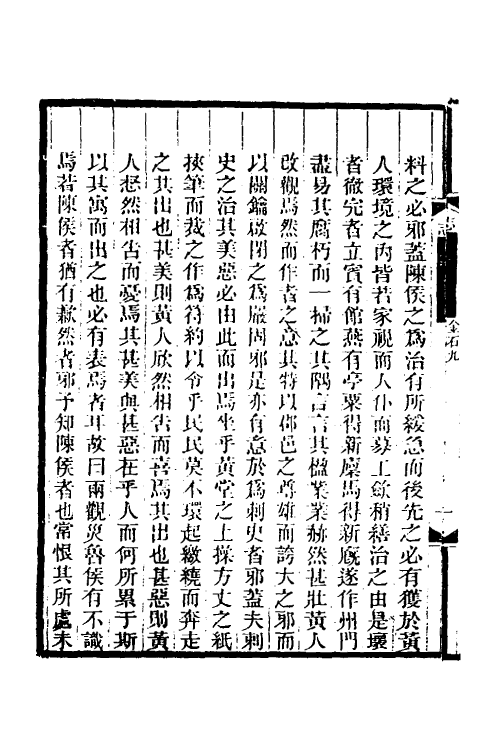 料之必邪蓋陳侯之為治有所緩急而後先之必有獲於黃
人環境之內皆若家視而人仆而募工歛稍繕治之由是壞
者徹完者立賓有館燕有亭粟得新廩馬得新廐遂作州門
盡易其腐朽而一掃之其隅言言其楹業業赫然甚壯黃人
改觀焉然而作者之意其特以郡邑之尊雄而誇大之邪而
以關鑰啟閉之為嚴固邪是亦有意於為刺史者邪蓋夫刺
史之治其美惡必由此而出焉坐乎黃堂之上操方丈之紙
挾筆而裁之作為符約以令乎民民莫不環起繳繞而奔走
之其出也甚美則黃人欣然相告而喜焉其出也甚惡則黃
人惄然相告而憂焉其甚美與甚惡在乎人而何所累于斯
以其寓而出之也必有表焉者耳故曰兩觀災魯侯有不識
焉若陳侯者猶有歉然者邪予知陳侯者也常恨其所處未
志
金石九